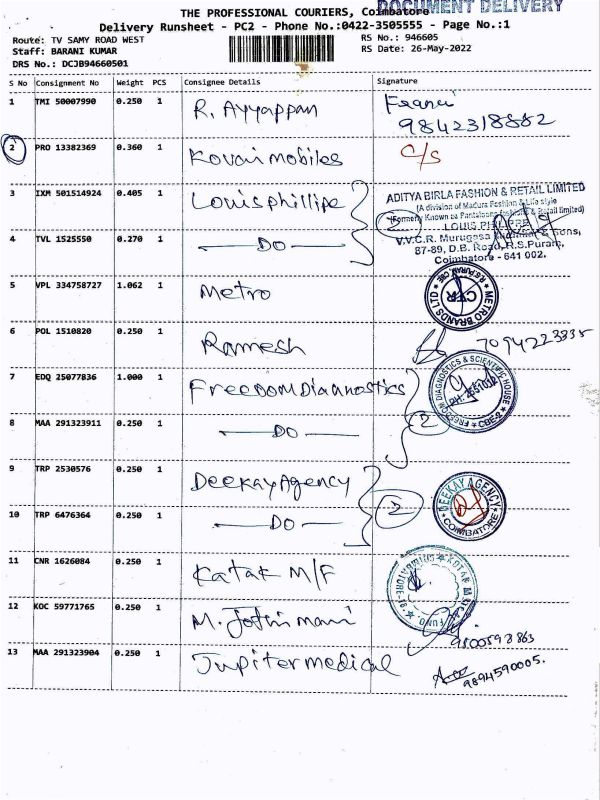 DOCUMENT DELIVERY
THE PROFESSIONAL COURIERS, Coimbatore
Delivery Runsheet - PC2 - Phone No.:0422-3505555 - Page No.:1
Route: TV SAMY ROAD WEST RS No.: 946605
Staff: BARANI KUMAR RS Date: 26-May-2022
DRS No.: DCJB94660501
S No Consignment No Weight PCS Consignee Details Signature
1 TMI 50007990 0.250 1 R. Ayyappan
9842318882
2 PRO 13382369 0.360 1 Kovai mobiles C/S
3 IXM 501514924 0.405 1 Louisphillipe 2
ADITYA BIRLA FASHION & RETAIL LIMITED
(A division of Madura Fashion & Life style
(Formerly Known as Pantaloons Fashion & Retail limited)
LOUIS PHILIPPE
V.V.C.R. Murugesa & Sons,
87-89, D.B. Road, R.S.Puram,
Coimbatore - 641 002.
4 TVL 1525550 0.270 1 DO
5 VPL 334758727 1.062 1 Metro
METRO BRANDS LTD R S PURAM, CBE
6 POL 1510820 0.250 1 Ramesh 7094223835
7 EDQ 25077836 1.000 1 Freedom Diagnostics 2
FREEDOM DIAGNOSTICS & SCIENTIFIC HOUSE
CBE-2
8 MAA 291323911 0.250 1 DO
9 TRP 2530576 0.250 1 Deekay Agency 2
DEEKAY AGENCY
COIMBATORE
10 TRP 6476364 0.250 1 DO
11 CNR 1626084 0.250 1 Katak M/F
KOTAK FUND COIMBATORE
12 KOC 59771765 0.250 1 M. Jothimani
9500598863
13 MAA 291323904 0.250 1 Jupiter medical
9894590005.